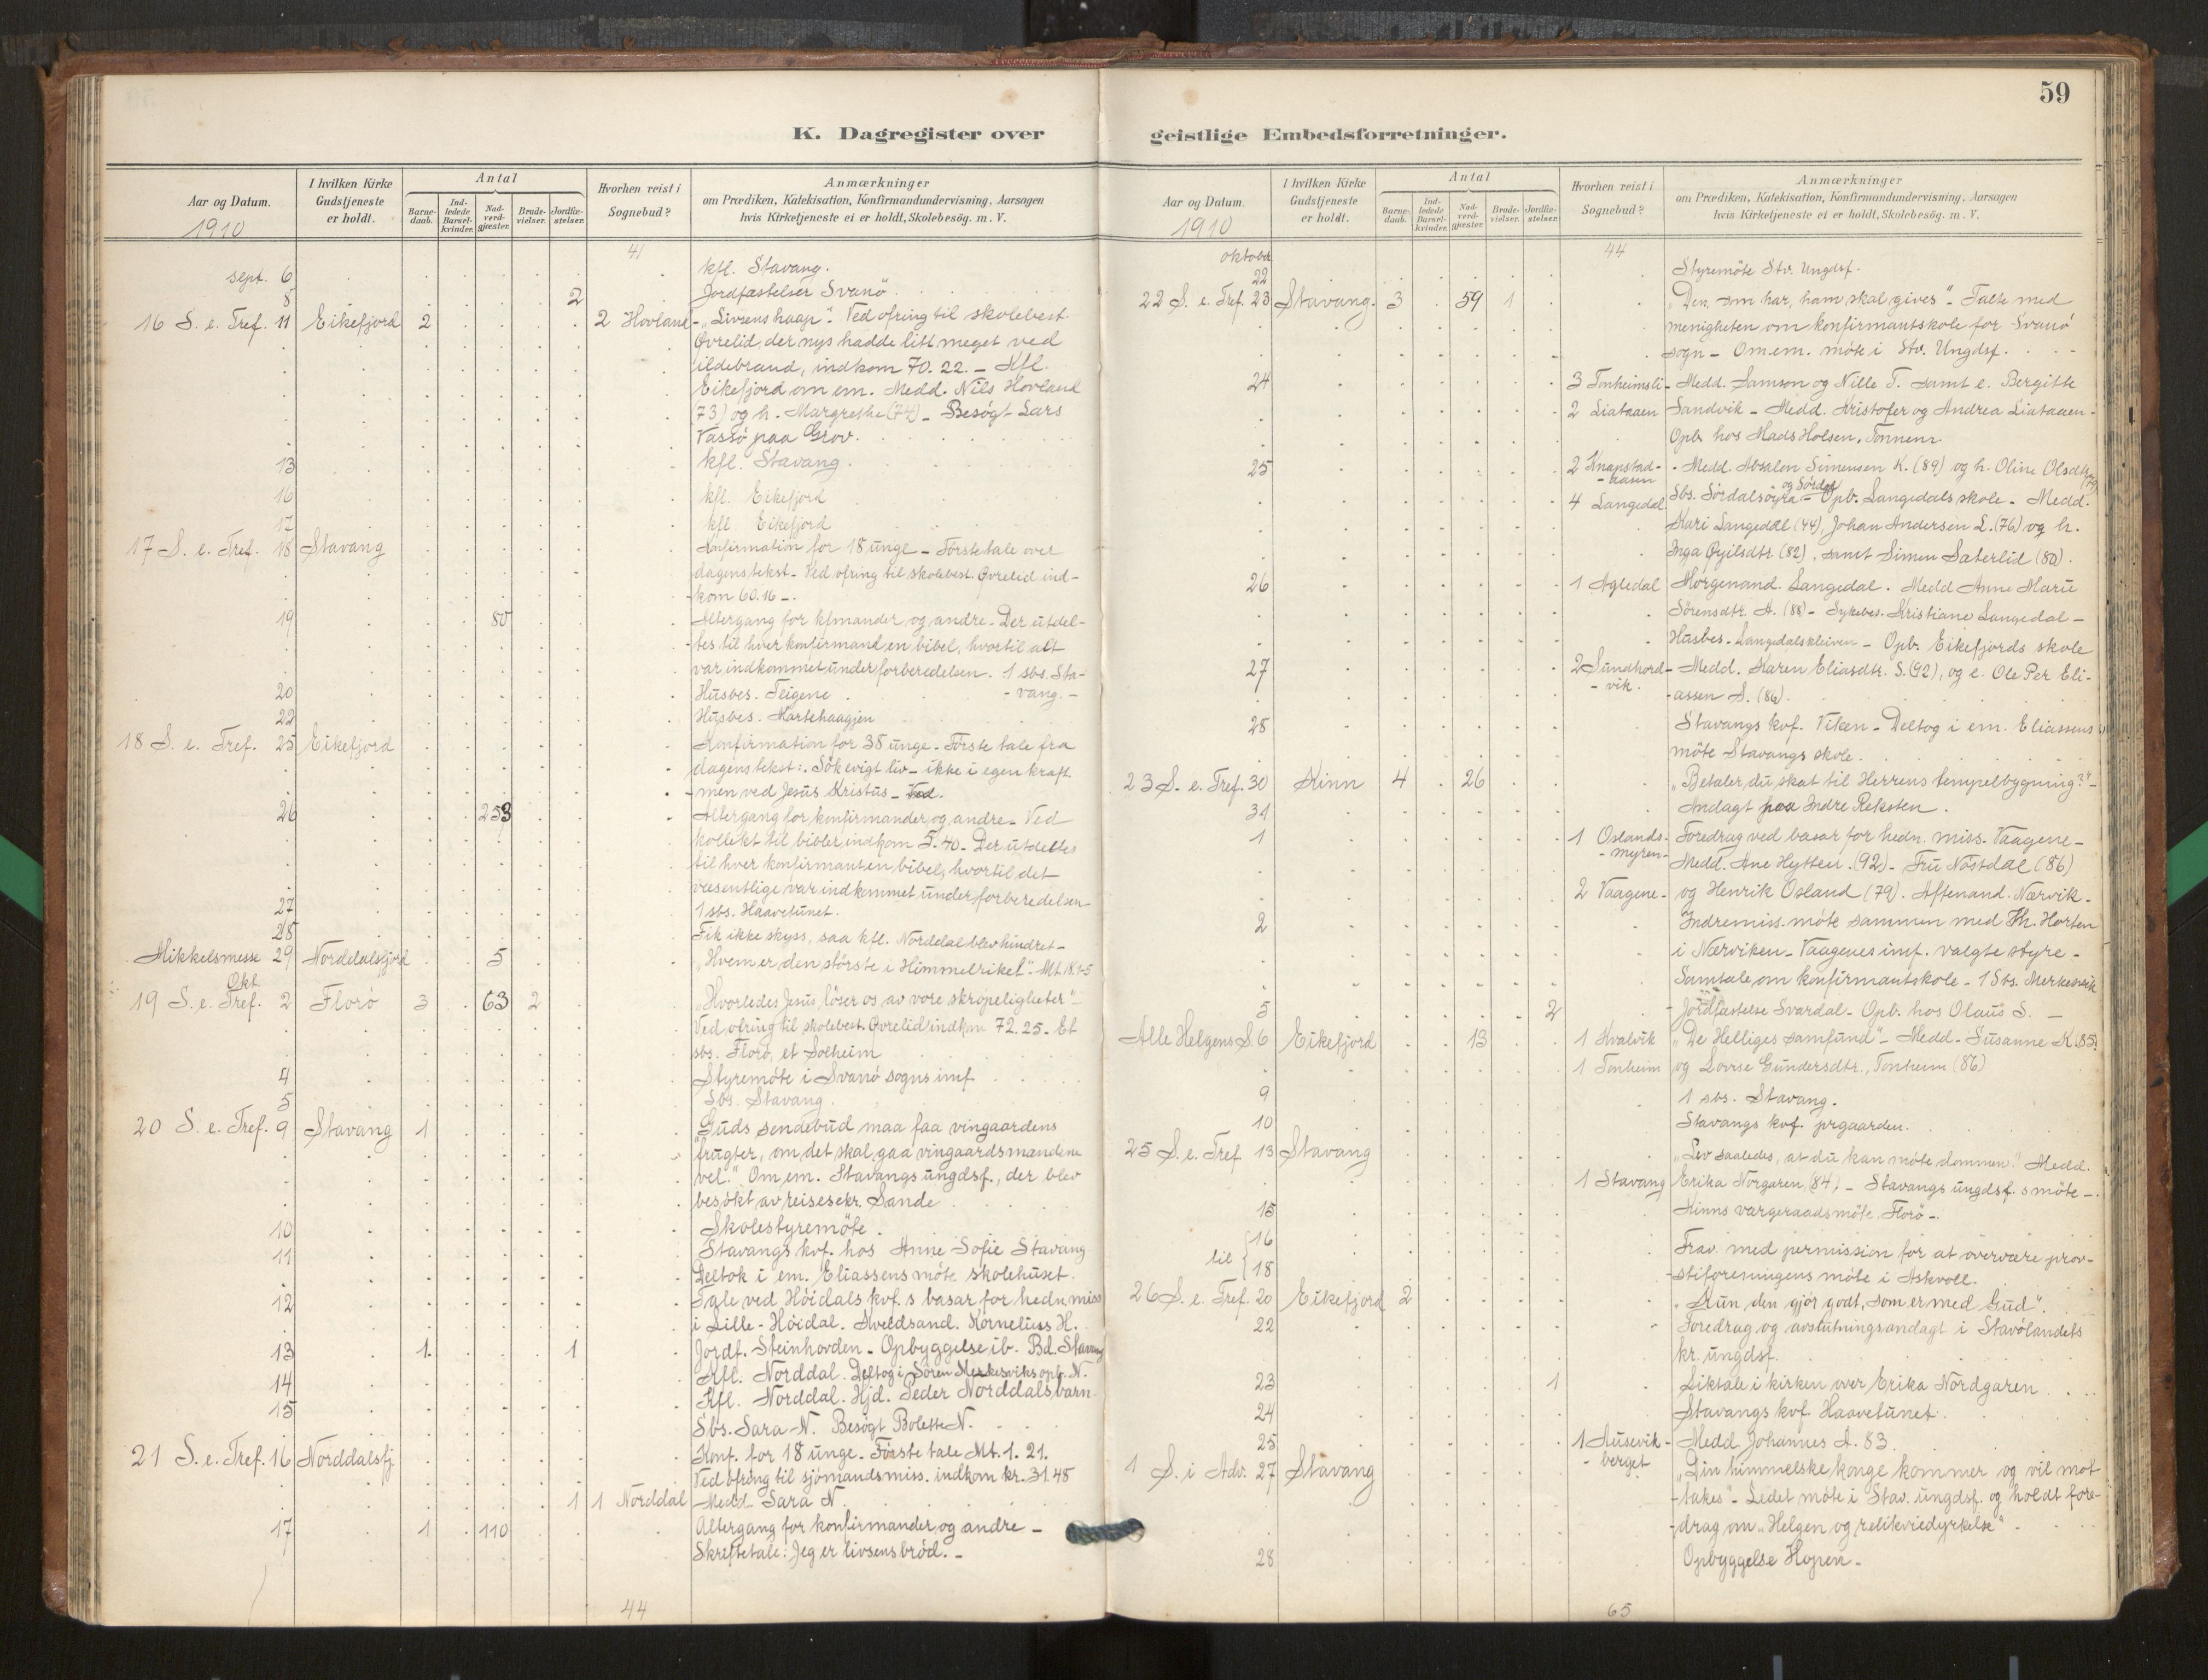 59
K. Dagregister over
geistlige Embedsforretninger.
Aar og Datum.
1910
I hvilken Kirke Gudstjeneste er holdt.
Antal
Barne-daab.
Ind-ledede Barsel-kvinder.
Nad-verd-gjæster.
Brude-vielser.
Jordfæ-stelser.
Hvorhen reist i Sognebud?
Anmærkninger
om Prædiken, Katekisation, Konfirmandundervisning, Aarsagen
hvis Kirketjeneste ei er holdt, Skolebesög. m. V.
41
sept. 6 kfl. Stavang.
8 2 Jordfæstelser Svanö
16 S. e. Tref. 11 Eikefjord 2 2 Hovland - „Livsens haap". Ved ofring til skolebest.
Øvrelid, der nys hadde litt meget ved
ildebrand, indkom 70.22. - Kfl.
Eikefjord om em. Medd. Nils Hovland
(73) og h. Margrethe (74) - Besögt Lars
Vassö paa Grov.
13 kfl. Stavang.
16 kfl. Eikefjord
17 kfl. Eikefjord
17 S. e. Tref. 18 Stavang Konfirmation for 18 unge - Förste tale over
dagens tekst - Ved ofring til skolebest. Øvrelid ind-
-kom 60.16 -.
19 80 Altergang for kfmander og andre - Der utdel-
-tes til hver konfirmand en bibel, hvortil alt
var indkommet under forberedelsen. 1 sbs. Sta-
20 Husbes. Teigene - vang. -
22 Husbes. Martehaagjen
18 S. e. Tref. 25 Eikefjord Konfirmation for 38 unge - Förste tale fra
dagens tekst: Sök evigt liv - ikke i egen kraft
- men ved Jesus Kristus - Ved.
26 253 Altergang for konfirmander og andre - Ved
kollekt til bibler indkom 5.40 - Der utdeltes
til hver konfirmant en bibel, hvortil det
væsentlige var indkommet under forberedelsen -
27 1 sbs. Haavetunet.
28 Fik ikke skyss, saa kfl. Norddal blev hindret -
Mikkelsmesse 29 Norddalsfjord 5 „Hvem er den störste i Himmelriket". Mt. 18.1-5
Okt.
19 S. e. Tref. 2 Florö 3 63 2 „Hvorledes Jesus löser os av vore skröpeligheter" -
Ved ofring til skolebest. Øvrelid indkom 72.25 - Et
sbs. Florö, et Solheim
4 Styremöte i Svanö sogns imf.
5 Sbs. Stavang.
20 S. e. Tref. 9 Stavang 1 „Guds sendebud maa faa vingaardens
frugter, om det skal gaa vingaardsmændene
vel." Om em. Stavangs ungdsf., der blev
besökt av reisesekr. Sande
10 Skolestyremöte.
11 Stavangs kvf. hos Anne Sofie Stavang
Deltok i em. Eliassens möte skolehuset.
12 Tale ved Höidals kvf.s basar for hedn. miss
i Lille-Höidal. Kveldsand. Kornelius H.
13 1. 1 Jordf. Steinhovden - Opbyggelse ib. Bd. Stavang
14 Kfl. Norddal. Deltog i Sören Merkesviks opb. N.
15 Kfl. Norddal. Hjd. Peder Norddals barn
Sbs. Sara N. Besögt Bolette N.
21 S. e. Tref. 16 Norddalsfj. Konf. for 18 unge - Förste tale Mt. 1. 21.
Ved ofring til sjömandsmiss. indkom kr. 31.48
1 1 Norddal - Medd. Sara N.
17 1 110 Altergang for konfirmander og andre -
Skriftetale: Jeg er livsens bröd. -
44
Aar og Datum.
1910
I hvilken Kirke Gudstjeneste er holdt.
Antal
Barne-daab.
Ind-ledede Barsel-kvinder.
Nad-verd-gjæster.
Brude-vielser.
Jordfæ-stelser.
Hvorhen reist i Sognebud?
Anmærkninger
om Prædiken, Katekisation, Konfirmandundervisning, Aarsagen
hvis Kirketjeneste ei er holdt, Skolebesög. m. V.
44
oktober
22 Styremöte Stv. Ungdsf.
22 S. e. Tref. 23 Stavang. 3 59 1 „Den, som har, ham skal gives" - Talte med
menigheten om konfirmantskole for Svanö
sogn - Om em. möte i Stv. Ungdsf.
24 3 Tonheimsli - Medd. Samson og Nille T. samt e. Bergitte
2 Liataaen Sandvik - Medd. Kristofer og Andrea Liataaen -
Opb. hos Mads Holsen,
25 2 Knapstad- - Medd. Absalon Simensen K. (89) og h. Oline Olsdtr. (79)
- aasen og Sördal
4 Langedal Sbs. Sördalsöyra - Opb. Langedals skole - Medd.
Kari Langedal (44), Johan Andersen L. (76) og h.
Inga (82), samt Simen Sæterlid (80).
26 1 Agledal Morgenand. Langedal. Medd Anne Marie
Sörensdtr. A. (88) - Sykebes. Kristiane Langedal -
Husbes. Langedalskleiven - Opb. Eikefjords skole
27 2 Sundhord- - Medd. Karen Eliasdtr. S. (92), og e. Ole Per Eli-
- vik. -assen S. (86).
28 Stavangs kvf. Viken - Deltog i em. Eliassens
möte Stavangs skole.
23 S. e. Tref. 30 Kinn 4 26 „Betaler du skat til Herrens tempelbygning?" -
31 Andagt paa Indre Reksten.
1 1 Oslands- Foredrag ved basar for hedn. miss. Vaagene -
- myren - Medd. Ane Hytten (92) - Fru Nöstdal (86)
2 Vaagene - og Henrik Osland (79). Aftenand. Nærvik -
2 Indremiss. möte sammen med Th. Horten
i Nærviken - Vaagenes imf. valgte styre -
Samtale om konfirmantskole - 1 Sbs. Merkesvik
5 2 - Jordfæstelse Svardal - Opb. hos Olaus S. -
Alle Helgens S. 6 Eikefjord 13 1 Kvalvik „De Helliges samfund" - Medd. Susanne K (85)
1 Tonheim og Lovise Gundersdtr., Tonheim (86)
9 1 sbs. Stavang.
10 Stavangs kvf. prgaarden.
25 S. e. Tref 13 Stavang „Lev saaledes, at du kan möte dommen". Medd.
1 Stavang Erika Norgaren (84) - Stavangs ungdsf.s möte -
15 Kinns vergeraadsmöte, Florö -.
16
til { Frav. med permission for at overvære prov-
18 -stiforeningens möte i Askvoll.
26 S. e. Tref. 20 Eikefjord 2 „Kun den gjör godt, som er med Gud".
22 Foredrag og avslutningsandagt i Stavölandets
kr. ungdsf.
23 1 Liktale i kirken over Erika Nordgaren
24 Stavangs kvf. Haavetunet.
25 1 Husevik- - Medd. Johannes A. 83.
- berget
1 S. i Adv. 27 Stavang „Din himmelske konge kommer og vil mot-
-takes" - Ledet möte i Stav. ungdsf. og holdt fore-
-drag om „Helgen og relikviedyrkelse" -
28 Opbyggelse Hopen -
65